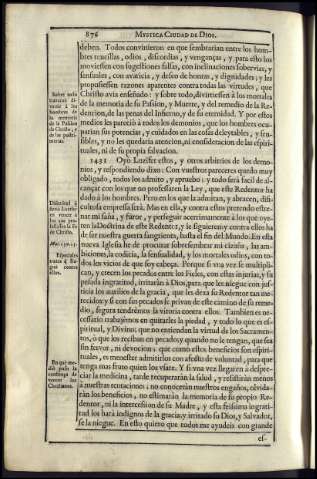 876
MYSTICA CIUDAD DE DIOS.
deben. Todos convinieron en que sembrarian entre los hom-
bres rencillas, odios, discordias, y venganças, y para esto los
moviessen con sugestiones falsas, con inclinaciones sobervias, y
sensuales, con avaricia, y deseo de honras, y dignidades; y les
propusiessen razones aparentes contra todas las virtudes, que
Christo avia enseñado: y sobre todo, divirtiessen à los mortales
de la memoria de su Passion, y Muerte, y del remedio de la Re-
dencion, de las penas del Infierno, y de su eternidad. Y por estos
medios les pareciò à todos los demonios, que los hombres ocu-
parian sus potencias, y cuidados en las cosas deleytables, y sen-
sibles, y no les quedaria atencion, ni consideracion de las espiri-
tuales, ni de su propia salvacion.
1431 Oyò Luzifer estos, y otros arbitrios de los demo-
nios, y respondiendo dixo: Con vuestros pareceres quedo muy
obligado, todos los admito, y apruebo: y todo será facil de al-
cançar con los que no professaren la Ley, que este Redentor ha
dado à los hombres. Pero en los que la admitan, y abracen, difi-
cultosa empresa será. Mas en ella, y contra ellos pretendo estre-
nar mi saña, y furor, y perseguir acerrimamente à los que oye-
ren la Doctrina de este Redentor, y le siguieren: y contra ellos ha
de ser nuestra guerra sangrienta, hasta el fin del Mundo. En esta
nueva Iglesia he de procurar sobresembrar mi cizaña, las am-
biciones, la codicia, la sensualidad, y los mortales odios, con to-
dos los vicios de que soy cabeça. Porque si una vez se multipli-
can, y crecen los pecados entre los Fieles, con estas injurias, y su
pesada ingratitud, irritarán à Dios, para que les niegue con jus-
ticia los auxilios de la gracia, que les dexa su Redentor tan me-
recidos; y con sus pecados se privan de este camino de su reme-
dio, segura tendrémos la vitoria contra ellos. Tambien es ne-
cessario trabajémos en quitarles la piedad, y todo lo que es es-
piritual, y Divino: que no entiendan la virtud de los Sacramen-
tos, ò que los reciban en pecado; y quando no le tengan, que sea
sin fervor, ni devocion: que como estos beneficios son espiri-
tuales, es menester admitirlos con afecto de voluntad, para que
tenga mas fruto quien los usare. Y si una vez llegaren à despre-
ciar la medicina, tarde recuperarán la salud, y resistirán menos
à nuestras tentaciones: no conocerán nuestros engaños, olvida-
rán los beneficios, no estimarán la memoria de su propio Re-
dentor, ni la intercession de su Madre, y esta feissima ingrati-
tud los hará indignos de la gracia; y irritado su Dios, y Salvador,
se la niegue. En esto quiero que todos me ayudeis con grande
es-